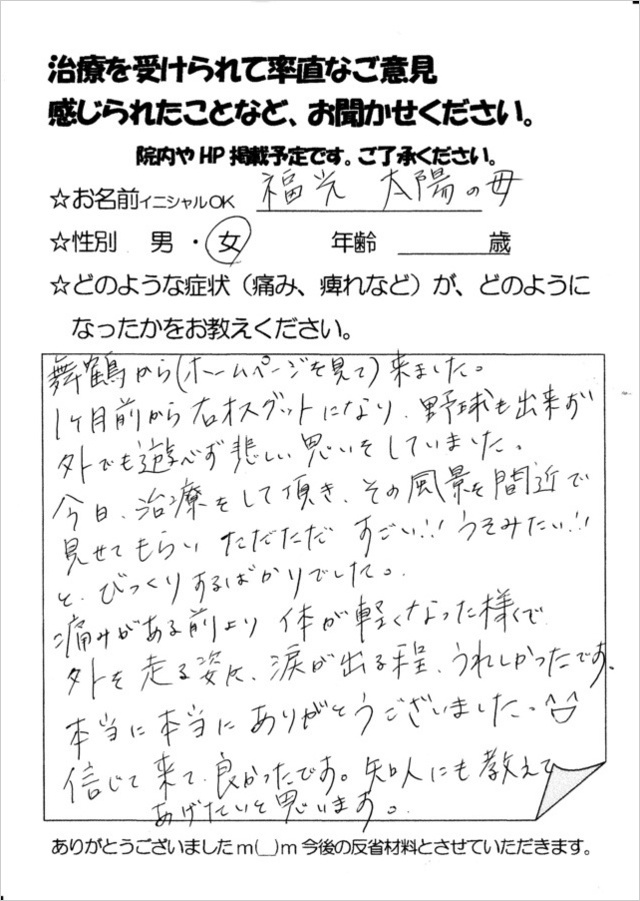 治療を受けられて率直なご意見
感じられたことなど、お聞かせください。
院内やHP掲載予定です。ご了承ください。
☆お名前イニシャルOK 福光 太陽の母
☆性別 男・女 年齢 歳
☆どのような症状（痛み、痺れなど）が、どのように
なったかをお教えください。
舞鶴から(ホームページを見て)来ました。
1ヶ月前から右オスグットになり、野球も出来ず
外でも遊べず悲しい思いをしていました。
今日、治療をして頂き、その風景を間近で
見せてもらい ただただ すごい!! うそみたい!!
と、びっくりするばかりでした。
痛みがある前より 体が軽くなった様で
外を走る姿に、涙が出る程、うれしかったです。
本当に本当に ありがとうございました。
信じて来て良かったです。知人にも教えて
あげたいと思います。
ありがとうございましたm(__)m今後の反省材料とさせていただきます。